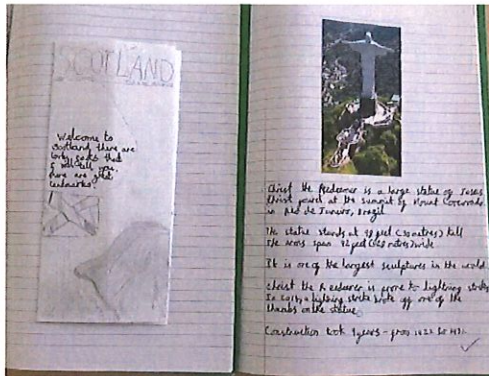 SCOTLAND
Welcome to
Scotland, there are
lots facts that
I will tell you.
there are great
landmarks
Christ the Redeemer is a large statue of Jesus
Christ at the summit of Mount Corcovado
in Rio de Janeiro, Brazil
The statue stands at 98 feet (30 metres) tall
The arms span 92 feet (28 metres) wide
It is one of the largest sculptures in the world
Christ the Redeemer is prone to lightning strikes
In 2014, a lighting strike broke off one of the
thumbs on the statue.
Construction took 9 years - from 1922 to 1931